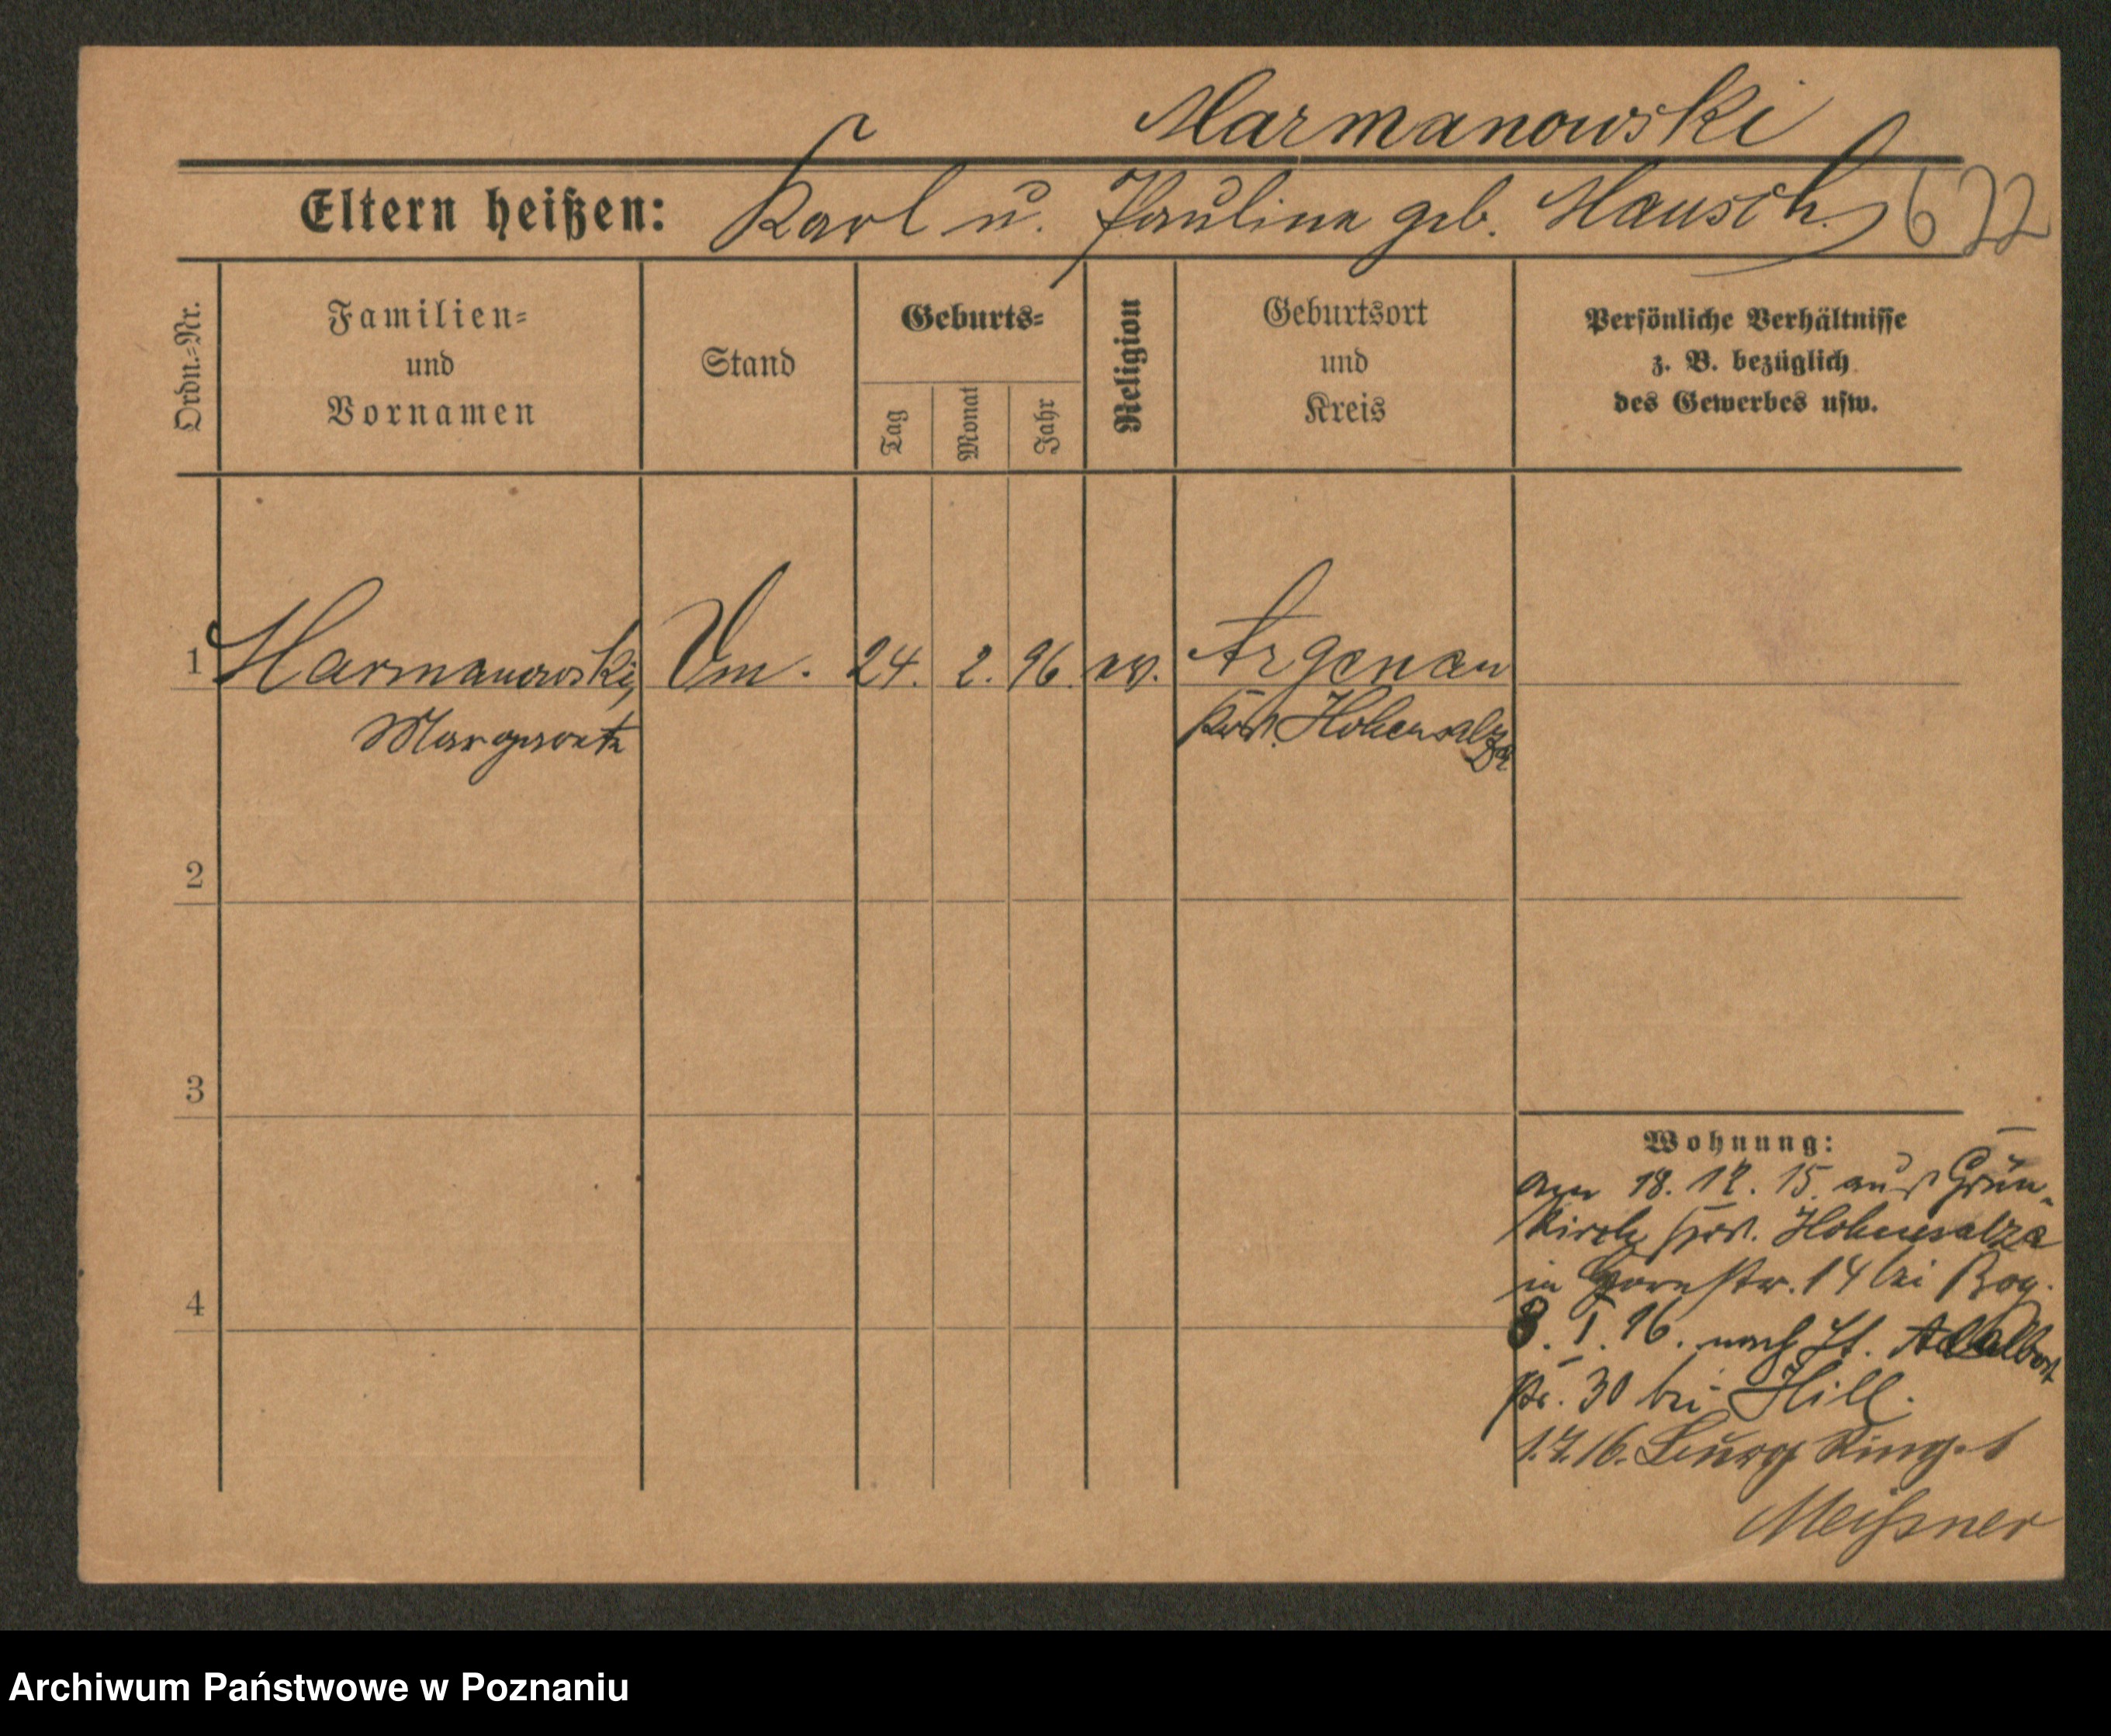 Marmanowski
Eltern heißen: Karl u. Pauline geb. Hausch. 622
Ordn.-Nr.
Familien- und Vornamen
Stand
Geburts-
Tag
Monat
Jahr
Religion
Geburtsort und Kreis
Persönliche Verhältnisse z. B. bezüglich des Gewerbes usw.
1 Harmanowski, 24. 2. 96. ev. Argenau
Margarete Krs. Hohensalza
2
3
4
Wohnung:
am 18. 12. 15 aus Grün-
kirch, Krs. Hohensalza
in str. 14 bei
8. I. 16. nach St. Adalbert
str. 30 bei Hill.
1.7.16. Ring 1
Meißner
Archiwum Państwowe w Poznaniu